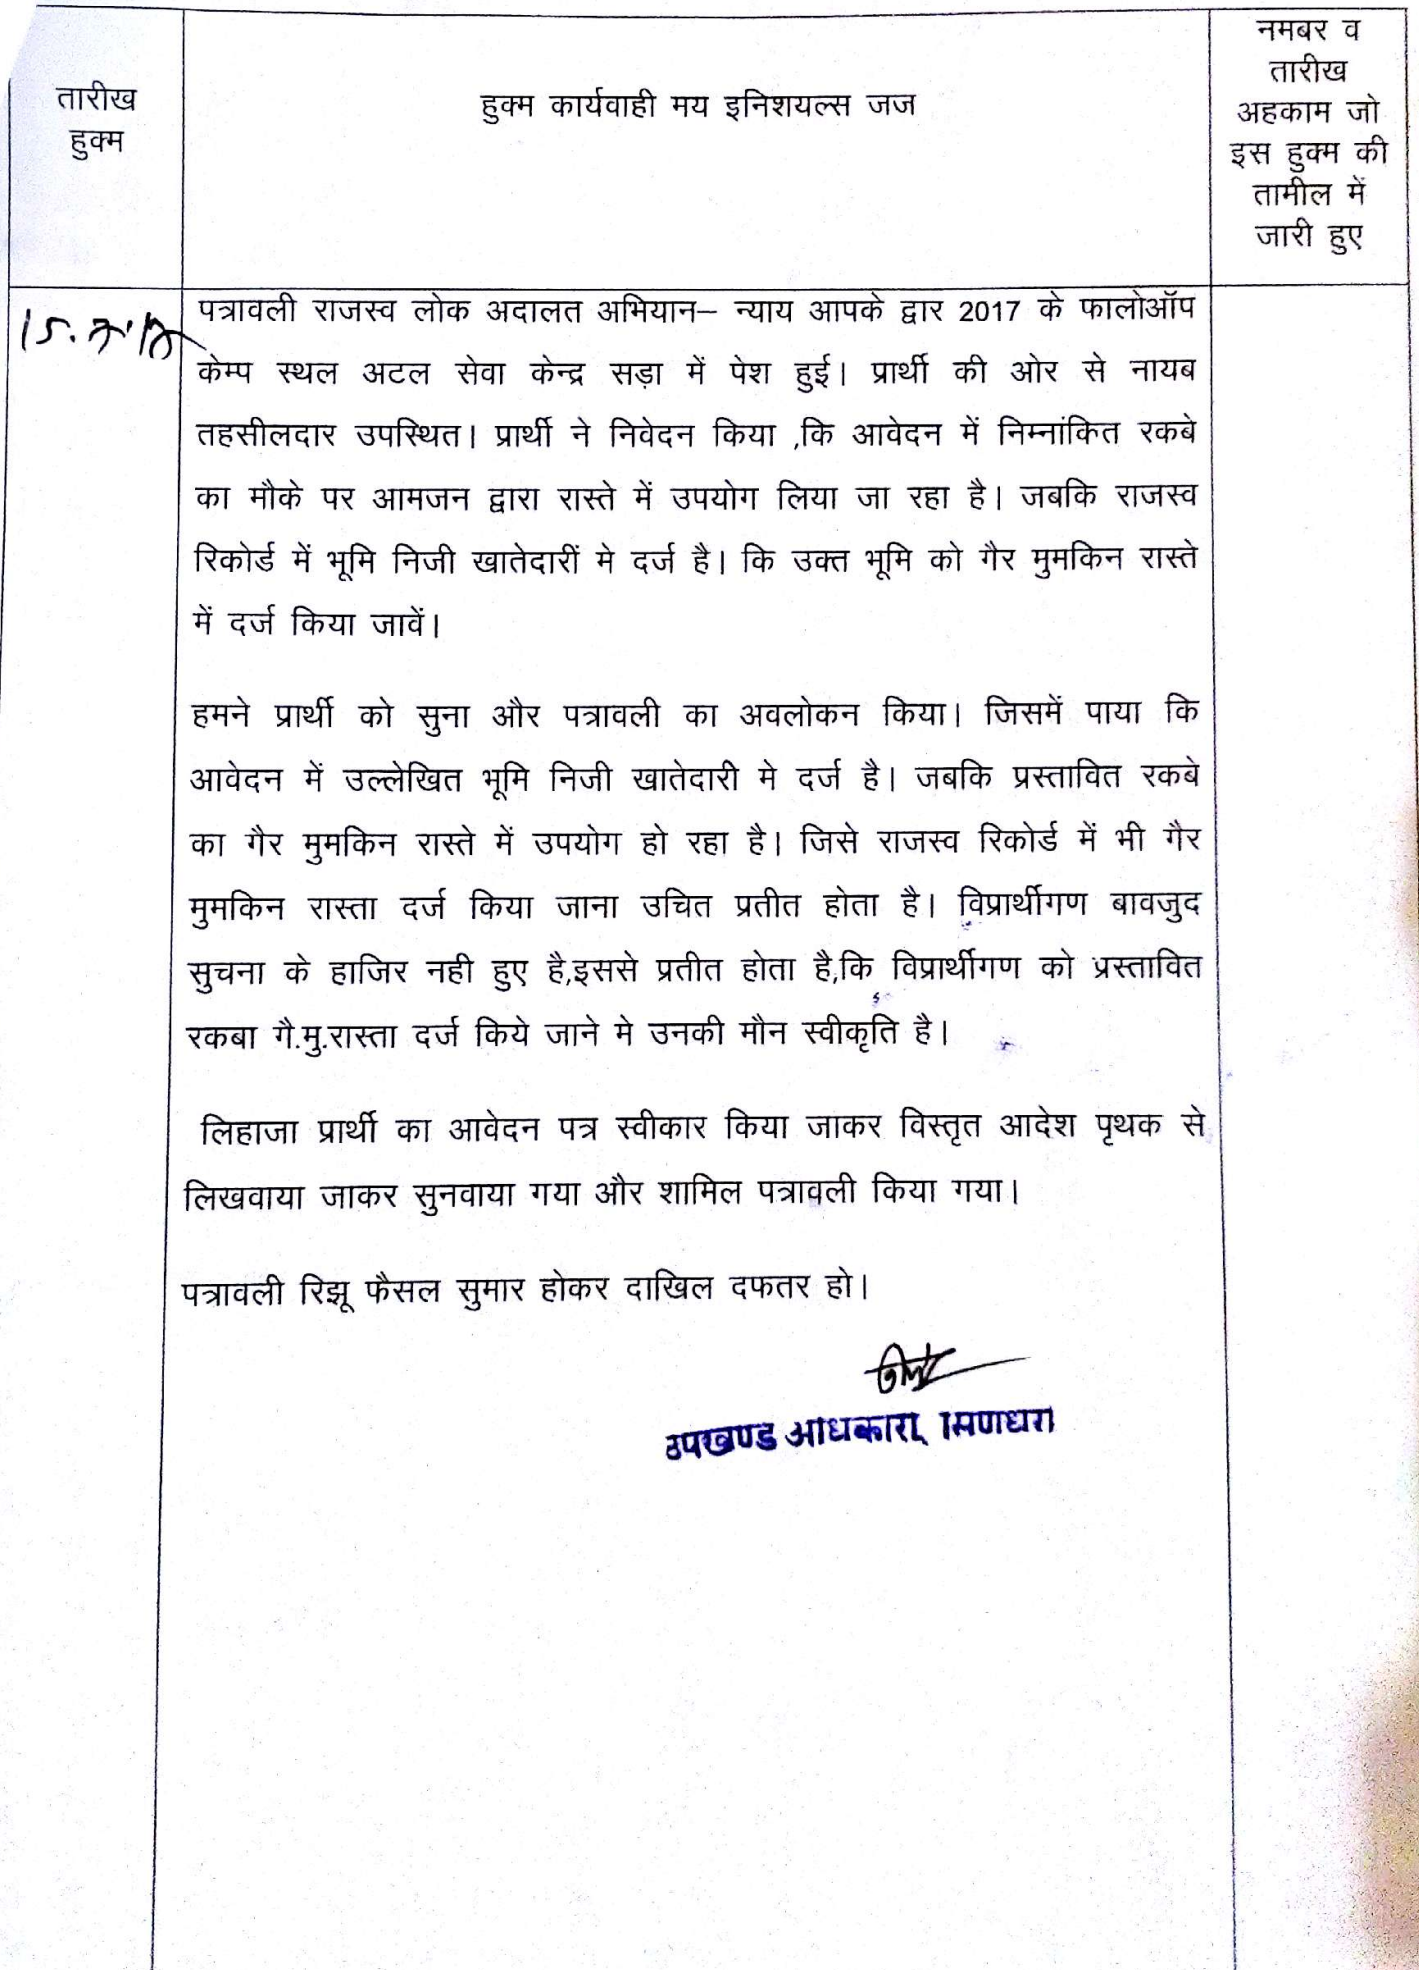 तारीख
हुक्म
हुक्म कार्यवाही मय इनिशयल्स जज
नमबर व
तारीख
अहकाम जो
इस हुक्म की
तामील में
जारी हुए
पत्रावली राजस्व लोक अदालत अभियान– न्याय आपके द्वार 2017 के फालोऑप
केम्प स्थल अटल सेवा केन्द्र सड़ा में पेश हुई। प्रार्थी की ओर से नायब
तहसीलदार उपस्थित। प्रार्थी ने निवेदन किया ,कि आवेदन में निम्नांकित रकबे
का मौके पर आमजन द्वारा रास्ते में उपयोग लिया जा रहा है। जबकि राजस्व
रिकोर्ड में भूमि निजी खातेदारीं मे दर्ज है। कि उक्त भूमि को गैर मुमकिन रास्ते
में दर्ज किया जावें।
हमने प्रार्थी को सुना और पत्रावली का अवलोकन किया। जिसमें पाया कि
आवेदन में उल्लेखित भूमि निजी खातेदारी मे दर्ज है। जबकि प्रस्तावित रकबे
का गैर मुमकिन रास्ते में उपयोग हो रहा है। जिसे राजस्व रिकोर्ड में भी गैर
मुमकिन रास्ता दर्ज किया जाना उचित प्रतीत होता है। विप्रार्थीगण बावजुद
सुचना के हाजिर नही हुए है,इससे प्रतीत होता है,कि विप्रार्थीगण को प्रस्तावित
रकबा गै.मु.रास्ता दर्ज किये जाने मे उनकी मौन स्वीकृति है।
लिहाजा प्रार्थी का आवेदन पत्र स्वीकार किया जाकर विस्तृत आदेश पृथक से
लिखवाया जाकर सुनवाया गया और शामिल पत्रावली किया गया।
पत्रावली रिझू फैसल सुमार होकर दाखिल दफतर हो।
उपखण्ड अधिकारी, सिणधरी